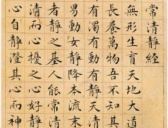 常清靜經
無形生育天地大道
長養萬物吾不知其
有濁有動有靜天清
男動女靜降本流末
者靜之基人能常清
清而心擾之心好靜
心自靜澄其心而神